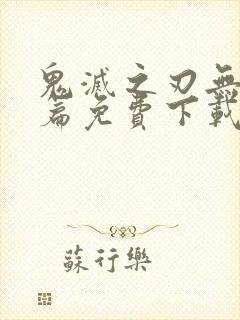 鬼滅之刃無
篇免費下載
蘇行樂